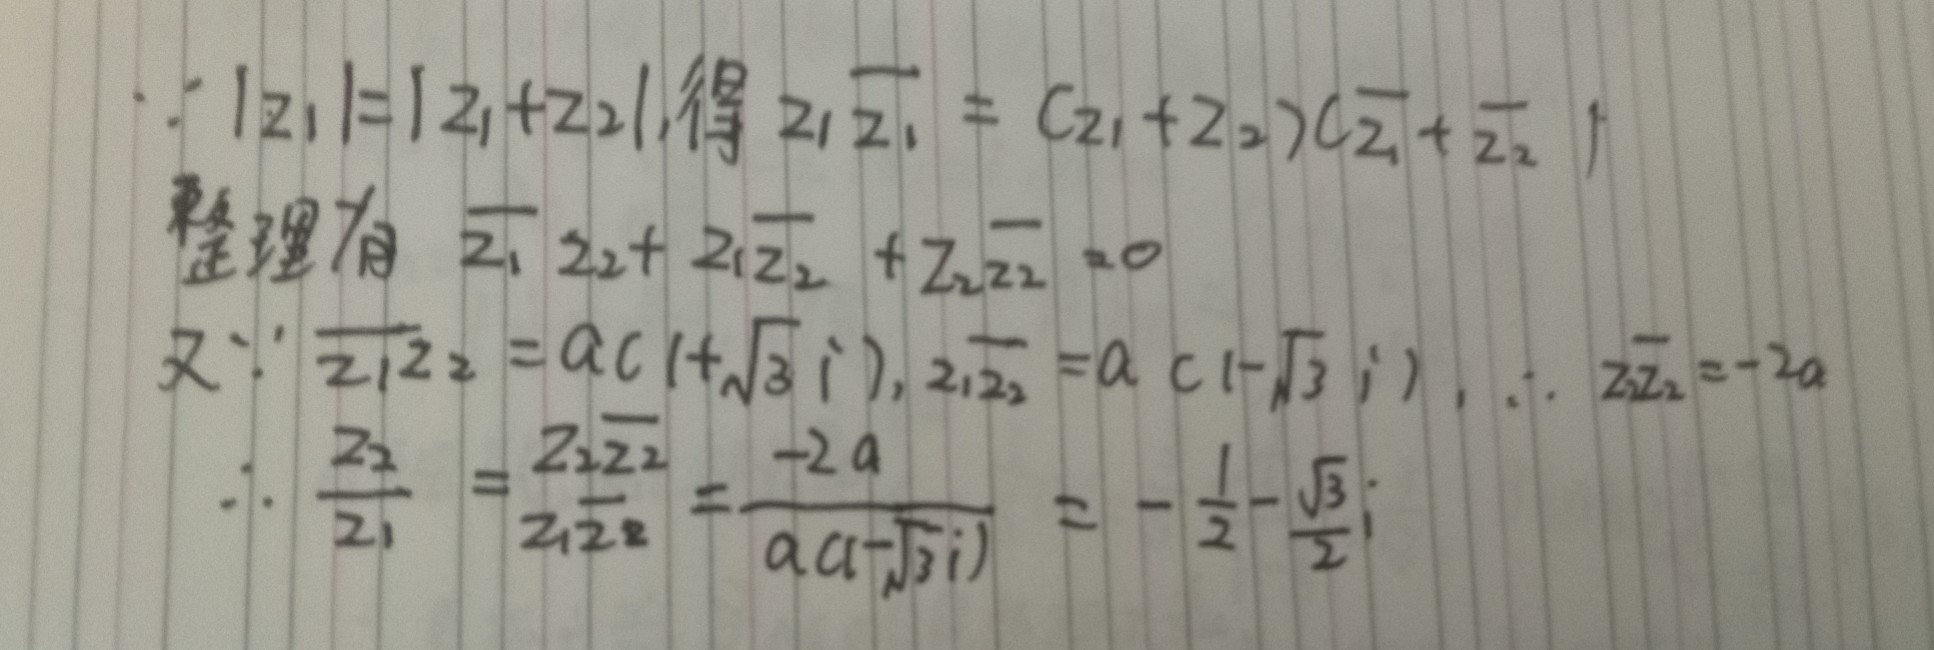 ∵ |z₁|=|z₁+z₂|,得 z₁z̅₁ = (z₁+z₂)(z̅₁+z̅₂)
整理有 z̅₁z₂+z₁z̅₂+z₂z̅₂=0
又∵ z̅₁z₂=a(1+√3i), z₁z̅₂=a(1-√3i), ∴ z₂z̅₂=-2a
∴ z₂/z₁ = z₂z̅₂/z₁z̅₂ = -2a/a(1-√3i) = -1/2-√3/2i